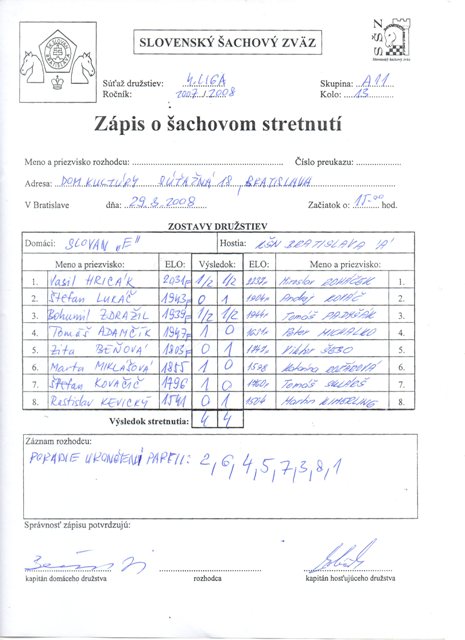 SLOVENSKÝ ŠACHOVÝ ZVÄZ
SŠZ
Slovenský šachový zväz
Súťaž družstiev: 4. LIGA Skupina: A11
Ročník: 2007/2008 Kolo: 13
Zápis o šachovom stretnutí
Meno a priezvisko rozhodcu: Číslo preukazu:
Adresa: DOM KULTÚRY SÚŤAŽNÁ 18, BRATISLAVA
V Bratislave dňa: 29.3.2008 Začiatok o: 15.00 hod.
ZOSTAVY DRUŽSTIEV
Domáci: SLOVAN „E" Hostia: KŠN BRATISLAVA 'A'
Meno a priezvisko: ELO: Výsledok: ELO: Meno a priezvisko:
1. Vasil HRICÁK 2031 1/2 1/2 Miroslav 1.
2. Štefan LUKÁČ 1943 0 1 Andrej KOVÁČ 2.
3. Bohumil ZDRAŽIL 1939 1/2 1/2 Tomáš 3.
4. Tomáš ADAMČÍK 1947 1 0 Peter MICHALKO 4.
5. Zita BEŇOVÁ 1803 0 1 Viktor ŠEBO 5.
6. Marta MIKLÁŠOVÁ 1855 1 0 1578 6.
7. Štefan KOVAČIČ 1796 1 0 Tomáš 7.
8. Rastislav KEVICKÝ 1541 0 1 1504 Martin KIMERLING 8.
Výsledok stretnutia: 4 4
Záznam rozhodcu:
PORADIE UKONČENÍ PARTII: 2,6,4,5,7,3,8,1
Správnosť zápisu potvrdzujú:
kapitán domáceho družstva rozhodca kapitán hosťujúceho družstva